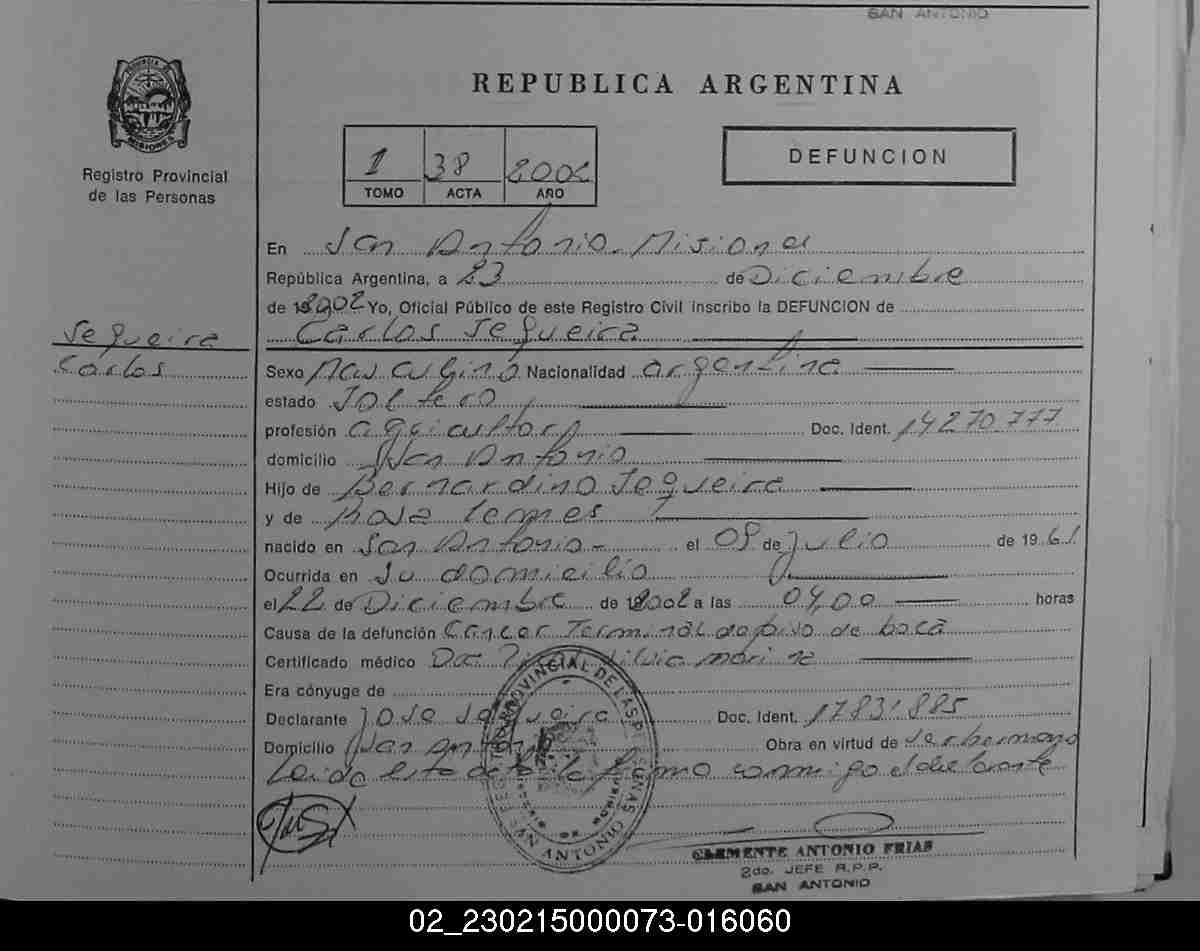 SAN ANTONIO
PROVINCIA DE MISIONES
REPUBLICA ARGENTINA
Registro Provincial
de las Personas
1 38 2002
TOMO ACTA AÑO
DEFUNCION
En San Antonio. Misiones
República Argentina, a 23 de Diciembre
de 2002 Yo, Oficial Público de este Registro Civil inscribo la DEFUNCION de
Sequeira
Carlos
Carlos Sequeira
Sexo Masculino Nacionalidad argentina
estado Soltero
profesión agricultor Doc. Ident. 14270.777
domicilio San Antonio
Hijo de Bernardino Sequeira
y de Rosa Lemes
nacido en San Antonio - el 09 de Julio de 1961
Ocurrida en su domicilio
el 22 de Diciembre de 2002 a las 04,00 horas
Causa de la defunción Cancer Terminal de piso de boca
Certificado médico Dra. Silvia Marina
Era cónyuge de
Declarante Jose Sequeira Doc. Ident. 17831885
Domicilio San Antonio Obra en virtud de ser hermano
Leida esta acta la firma conmigo el declarante
REGISTRO PROVINCIAL DE LAS PERSONAS
SAN ANTONIO
CLEMENTE ANTONIO FRIAS
2do. JEFE R.P.P.
SAN ANTONIO
02_230215000073-016060